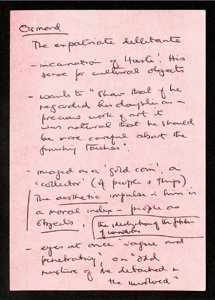 Osmond
The expatriate dilettante
- incarnation of 'taste'. His
sense for cultural objects
- wants to "show that if he
regarded his daughter as a
precious work of art it
was natural that he should
be more careful about the
finishing touches".
- imaged as a 'gold coin' a
'collector' (of people & things)
The aesthetic impulse in him is
a moral index - people as
objects.
eyes at once 'vague and
penetrating', an "odd
mixture of the detached &
the involved".